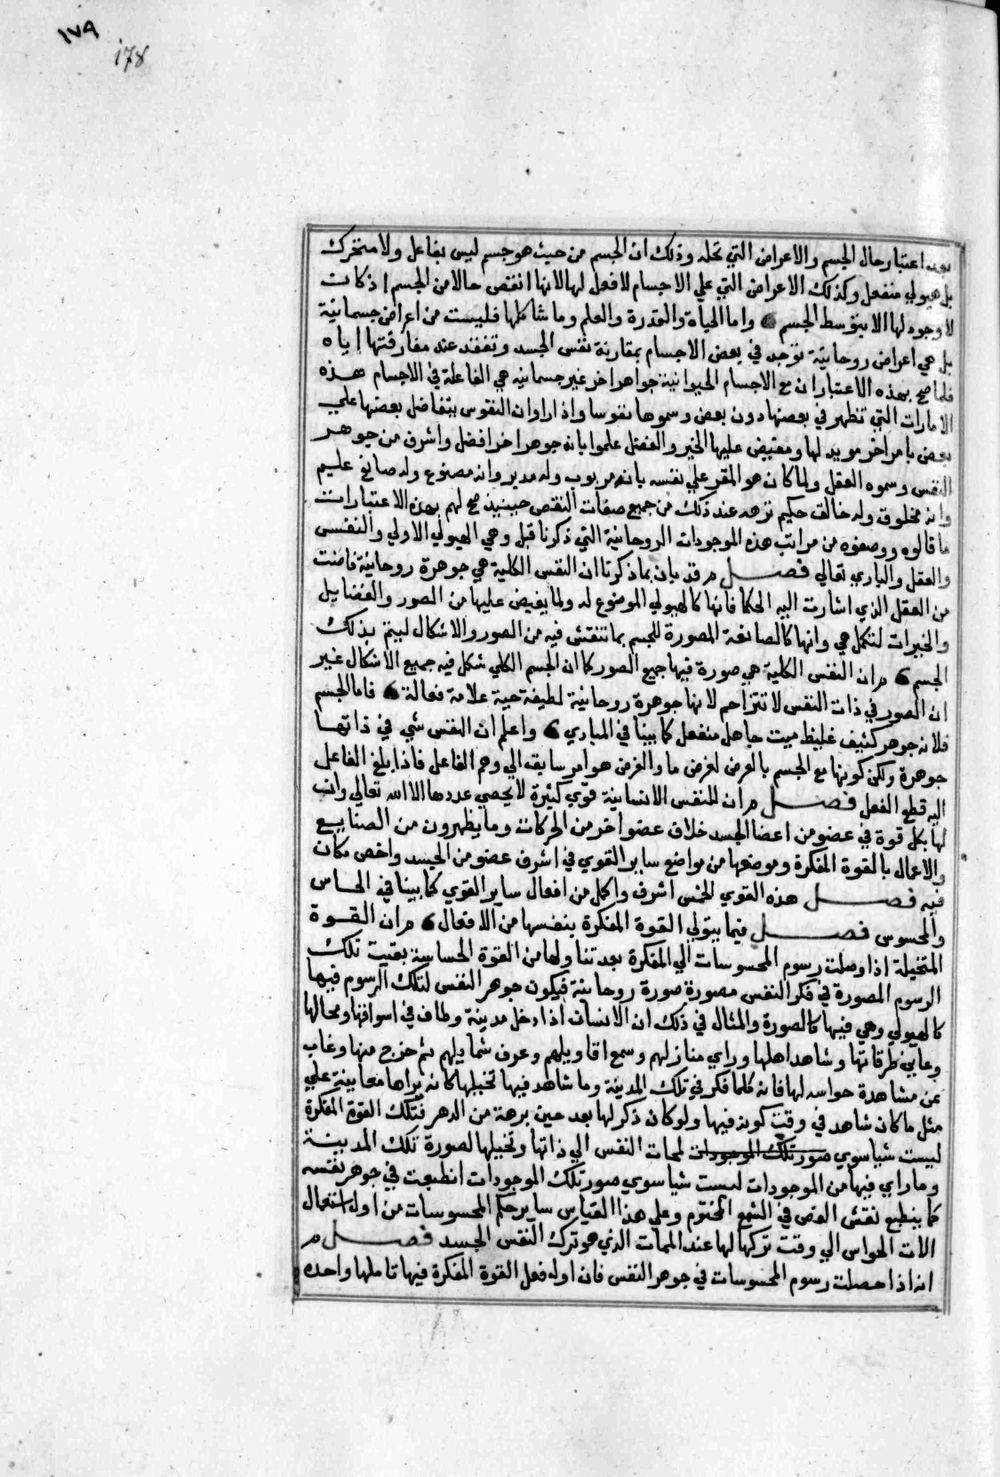 ١٧٩
178
بعد اعتبار حال الجسم والاعراض التي تحله وذلك ان الجسم من حيث هو جسم ليس بفاعل ولا متحرك
بل هيولي منفعل وكذلك الاعراض التي علي الاجسام لا فعل لها لانها انقص حالا من الجسم اذ كانت
لا وجود لها الا بتوسط الجسم واما الحياة والقدرة والعلم وما شاكلها فليست من اعراض جسمانية
بل هي اعراض روحانية توجد في بعض الاجسام بمقارنة نفس الجسد وتفقد عند مفارقتها اياه
فلما صح بهذه الاعتبار ان مع الاجسام الحيوانية جواهر اخر غير جسمانيه هي الفاعلة في الاجسام هذه
الامارات التي تظهر في بعضها دون بعض وسموها نفوسا واذ اراوا ان النفوس يتفاضل بعضها علي
بعض بامر اخر مويد لها ومفيض عليها الخير والفضل علموا بانه جوهر اخر افضل واشرف من جوهر
النفس وسموه العقل ولما كان هو المقر علي نفسه بانه مربوب وله مدبر وانه مصنوع وله صانع عليم
وانه مخلوق وله خالق حكيم نزهه عند ذلك من جميع صفات النقص حينيذ صح لهم بهذه الاعتبارات
ما قالوه ووصفوه من مراتب هذه الموجودات الروحانية التي ذكرنا قبل وهي الهيولي الاولي والنفس
والعقل والباري تعالي فصل م قد بان بما ذكرنا ان النفس الكلية هي جوهرة روحانية فاضت
من العقل الذي اشارت اليه الحكما فانها كالهيولي الموضوع له ولما يفيض عليها من الصور والفضايل
والخيرات لتكمل هي وانها كالصانعة المصورة للجسم بما تنقش فيه من الصور والاشكال ليتم بذلك
الجسم م ان النفس الكلية هي صورة فيها جميع الصور كما ان الجسم الكلي شكل فيه جميع الاشكال غير
ان الصور في ذات النفس لا تتزاحم لانها جوهرة روحانية لطيفة حية علامة فعالة فاما الجسم
فلانه جوهر كثيف غليظ ميت جاهل منفعل كما بينا في المبادي واعلم ان النفس شي في ذاتها
جوهرة ولكن كونها مع الجسم بالعرض لغرض ما والغرض هو امر سابق الي وهم الفاعل فاذا بلغ الفاعل
اليه قطع الفعل فصل م ان للنفس الانسانية قوي كثيرة لا يحصي عددها الا الله تعالي وان
لها بكل قوة في عضو من اعضا الجسد خلاف عضو اخر من الحركات وما يظهرون من الصنايع
والاعمال بالقوة المفكرة وموضعها من مواضع ساير القوي في اشرف عضو من الجسد واخص مكان
فيه فصل هذه القوي الخمس اشرف واكمل من افعال ساير القوي كما بينا في الحاس
والمحسوس فصل فيما يتولي القوة المفكرة بنفسها من الافعال م ان القوة
المتخيلة اذا وصلت رسوم المحسوسات الي المفكرة بعد تناولها من القوة الحساسة بقيت تلك
الرسوم المصورة في فكر النفس مصورة صورة روحانية فيكون جوهر النفس لتلك الرسوم فيها
كالهيولي وهي فيها كالصورة والمثال في ذلك ان الانسان اذا دخل مدينة وطاف في اسواقها ومحالها
وعاين طرقاتها وشاهد اهلها وراي منازلهم وسمع اقاويلهم وعرف شمايلهم ثم خرج منها وغاب
عن مشاهدة حواسه لها فانه كلما فكر في تلك المدينة وما شاهد فيها تخيلها كانه يراها معاينة علي
مثل ما كان شاهد في وقت كونه فيها ولو كان ذكر لها بعد حين برهة من الدهر فتلك القوة المفكرة
ليست شيا سوي صور تلك الموجودات لمحات النفس الي ذاتها وتخيلها لصورة تلك المدينة
وما راي فيها من الموجودات ليست شيا سوي صور تلك الموجودات انطبعت في جوهر نفسه
كما ينطبع نقش الفص في الشمع المختوم وعلي هذا القياس ساير حكم المحسوسات من اول استعمال
الات الحواس الي وقت تركها لها عند الممات الذي هو ترك النفس الجسد فصل م
انه اذا حصلت رسوم المحسوسات في جوهر النفس فان اول فعل القوة المفكرة فيها تاملها واحده